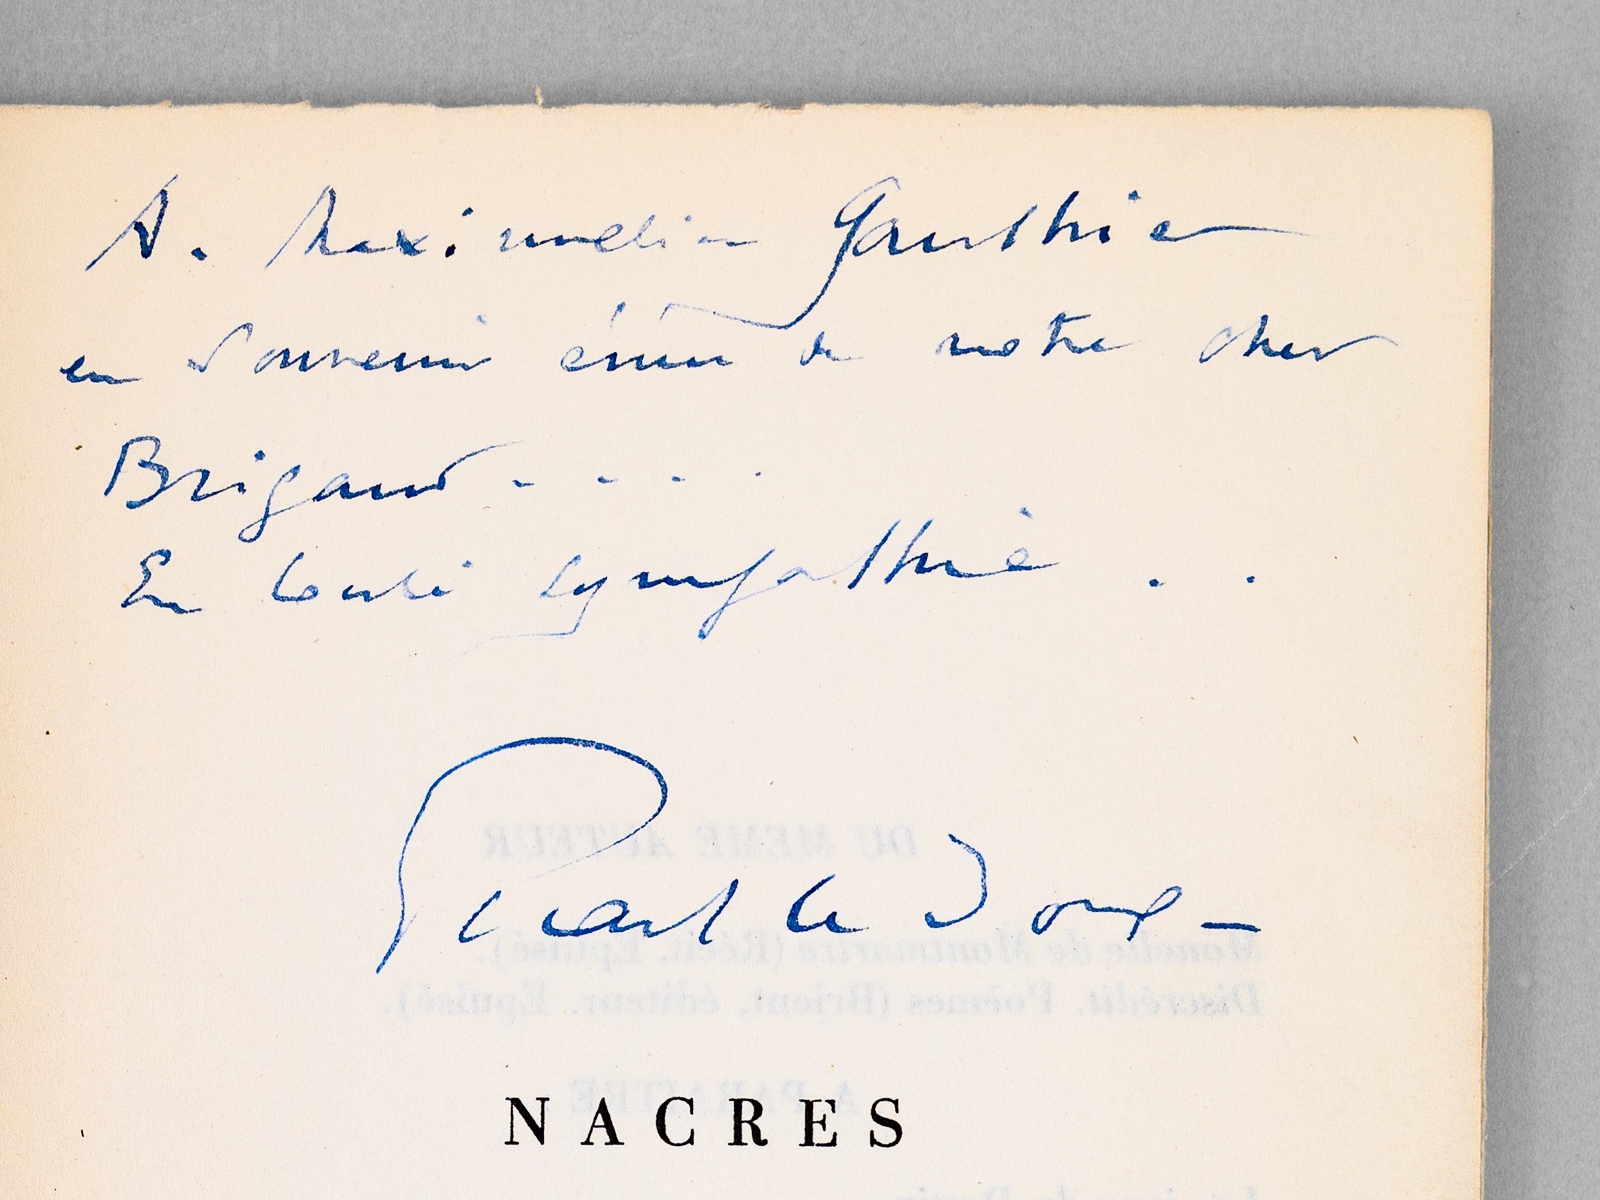 A. Maximilien Gauthier
en souvenir ému de notre cher
Brigand....
En toute sympathie..
Picart le Doux
DU MEME AUTEUR
Monelle de Montmartre (Récit. Epuisé).
Discrédit. Poèmes (Brient, éditeur. Epuisé).
A PARAITRE
NACRES